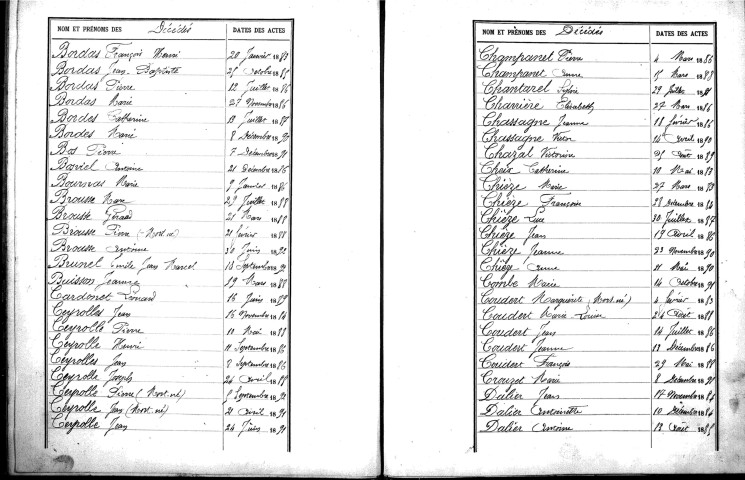 NOM ET PRÉNOMS DES Décédés DATES DES ACTES
Bordas François Henri 20 Janvier 18
Bordas Jean Baptiste 25 Octobre 18
Bordas Pierre 12 Juillet 1886
Bordas Marie 27 Novembre 1886
Bordes Catherine 13 Juillet 1887
Bordes Marie 8 Décembre 18
Bos Pierre 7 Décembre 18
Antoine 21 Décembre 1886
Bournas Marie 9 Janvier 1886
Brousse Marie 29 Juillet 1888
Brousse Gérard 21 Mars 1888
Brousse Pierre (Mort-né) 21 février 1888
Brousse Antoine 30 Juin 18
Brunel Emile Jean Marcel 18 Septembre 18
Buisson Jeanne 29 Mars 188
Cardonet Léonard 16 Juin 1889
Ceyrolles Jean 16 Novembre 1884
Ceyrolle Pierre 11 Mai 1888
Ceyrolle Henri 11 Septembre 1886
Ceyrolles Jean 8 Septembre 1886
Ceyrolle Joseph 24 Avril 18
Ceyrolle Pierre (Mort-né) 9 Septembre 18
Ceyrolle Jean (Mort-né) 21 Avril 18
Ceyrolle Jean 24 Juin 18
NOM ET PRÉNOMS DES Décédés DATES DES ACTES
Champanet Pierre 4 Mars 1886
Champanet Anne 15 Mars 188
Chantarel Sylvie 29 Juillet 18
Charrière Elisabeth 27 Mars 1886
Chassagne Jeanne 18 février 1886
Chassagne 16 Avril 1890
Chazal Victorine 25 Août 1889
Choix Catherine 10 Mai 1883
Chièze Marie 27 Mars 18
Chièze Françoise 28 Décembre 1886
Chièze 30 Juillet 1887
Chièze Jean 19 Avril 18
Chièze Jeanne 23 Novembre 1890
Chièze Anne 11 Mai 1890
Combe Marie 14 Octobre 18
Coudert Marguerite (Mort-né) 4 février 1883
Coudert Marie Louise 24 Août 1888
Coudert Jean 14 Juillet 1886
Coudert Jeanne 13 Décembre 1886
Coudert François 29 Mai 18
Crouzet Marie 8 Décembre 18
Dalier Jean 17 Novembre 1884
Dalier Antoinette 10 Décembre 1884
Dalier Antoine 13 Août 188